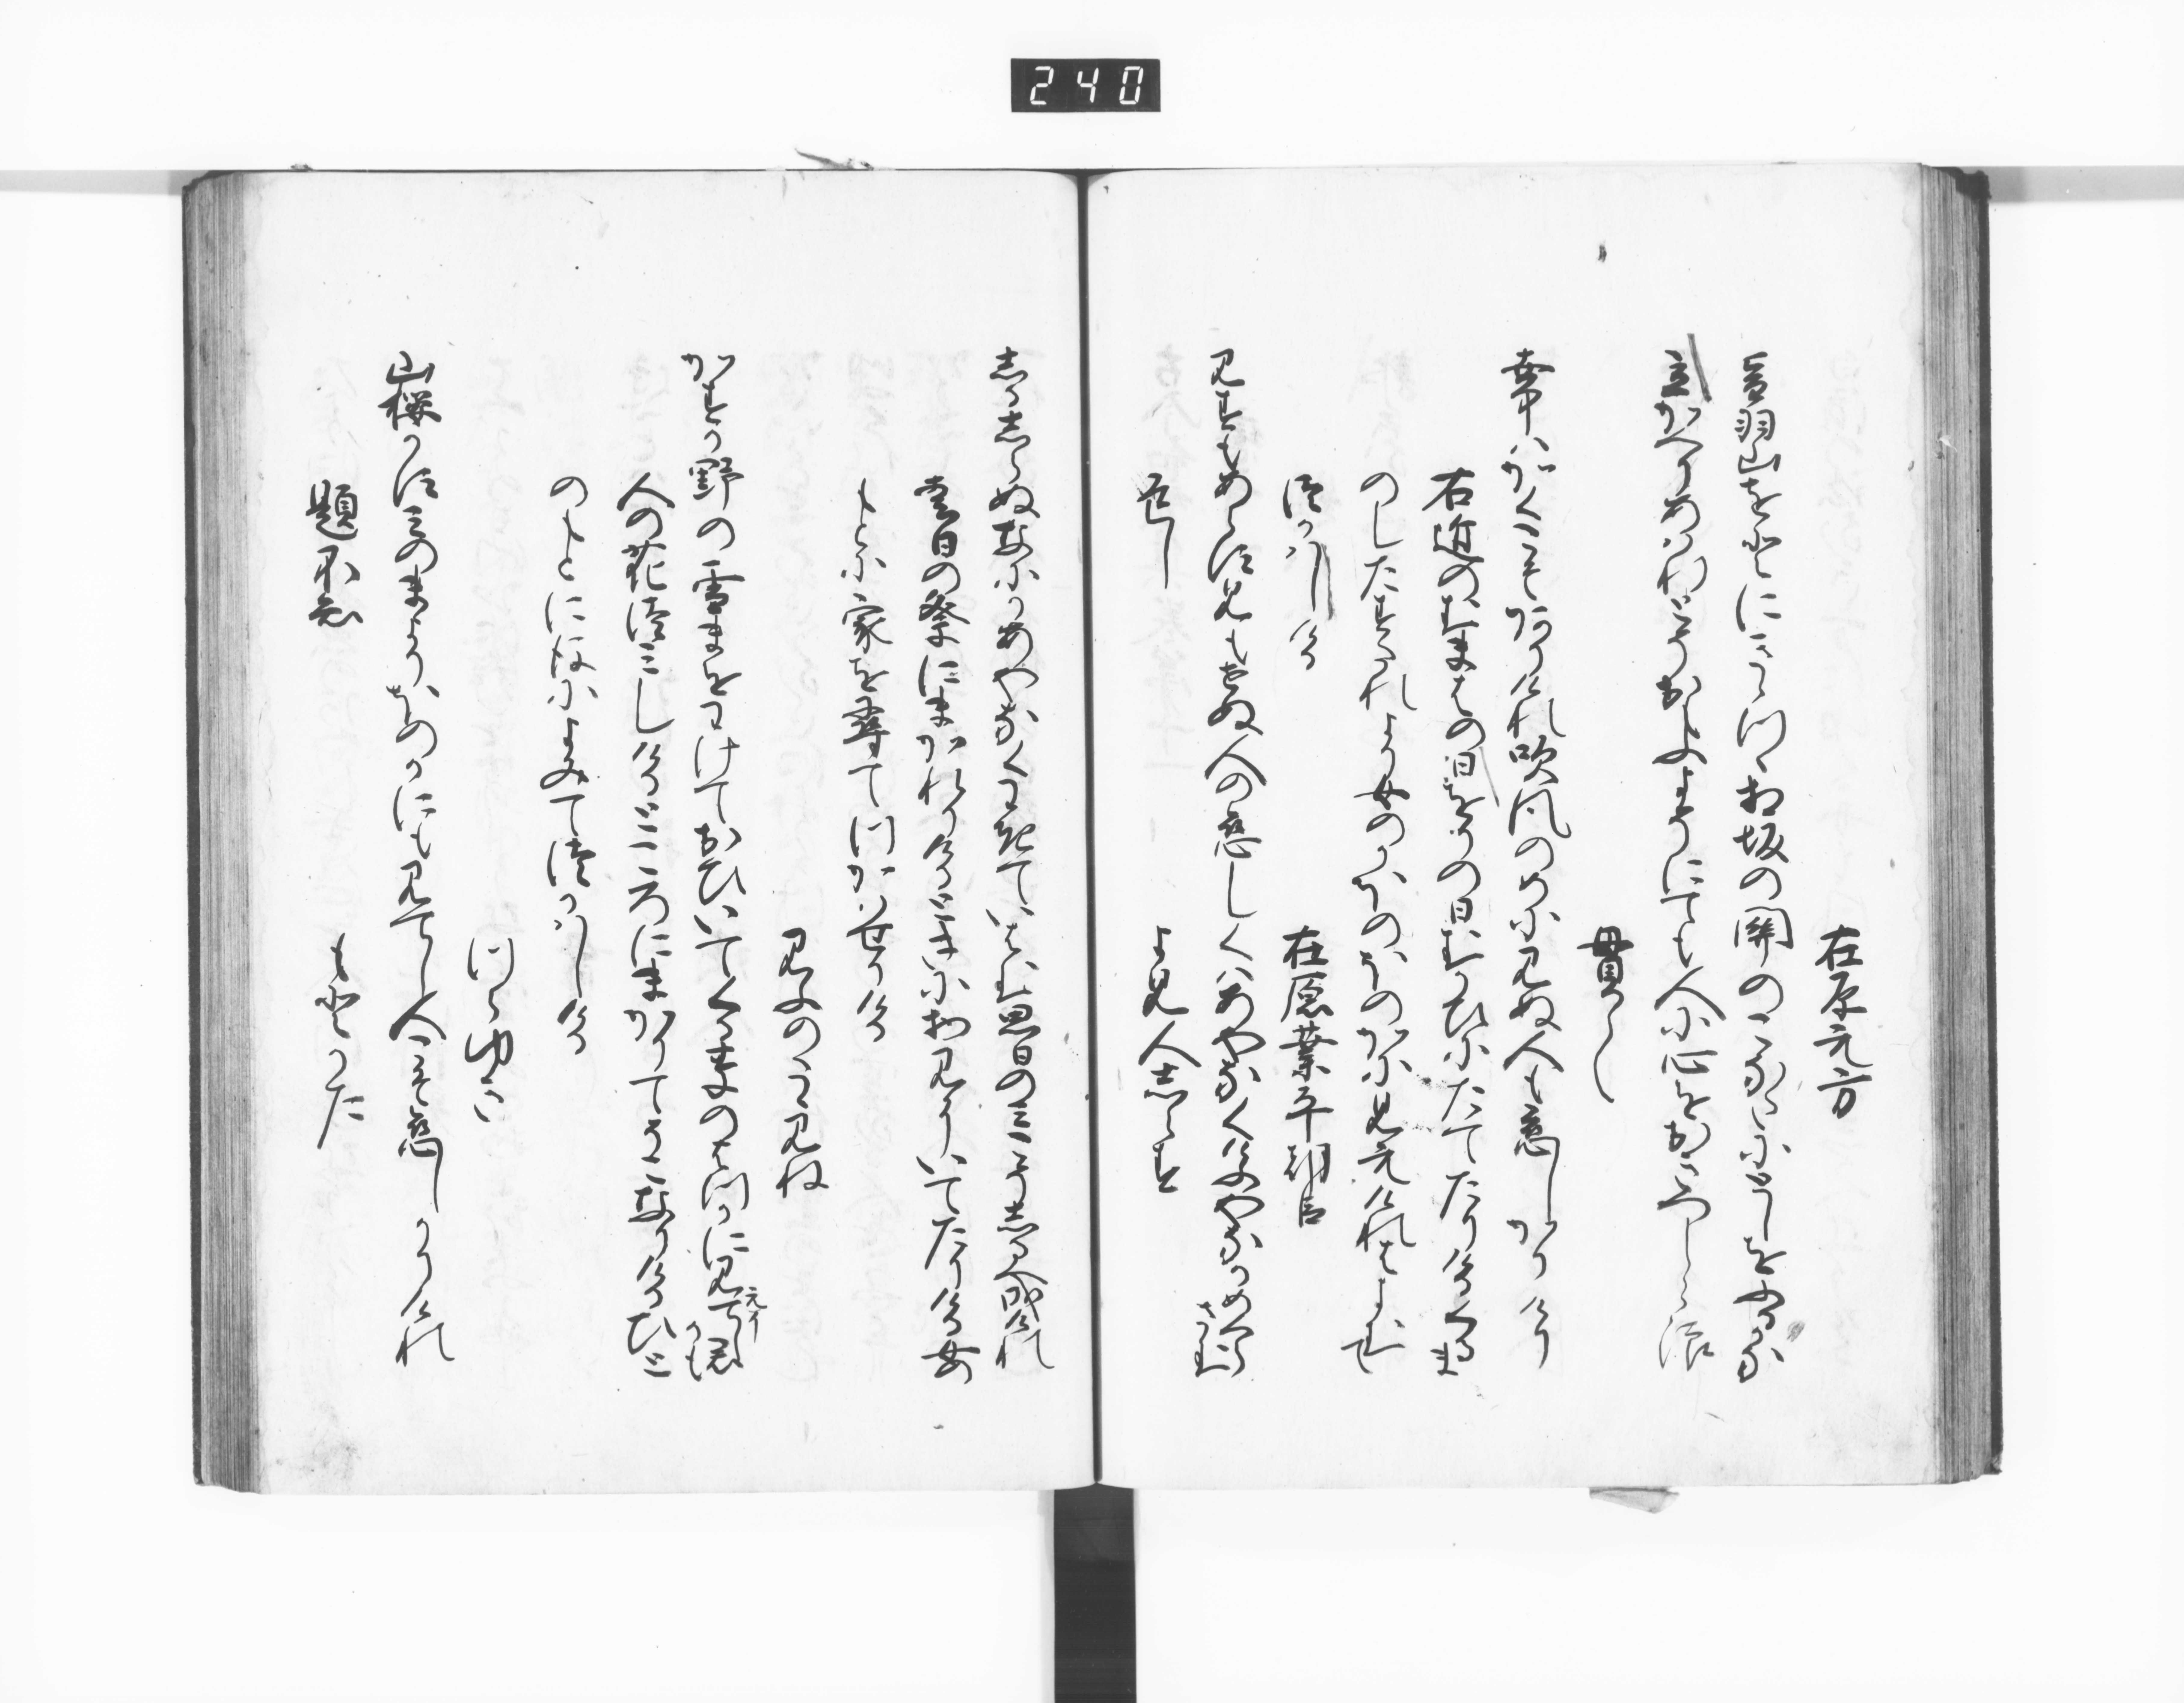 240
在原元方
音羽山をとにきゝつゝ相坂の関のこなたに年をふるかな
立かへりあはれとそおもふよそにても人に心をおきつしら浪
貫之
世中はかくこそ有けれ吹風のめに見ぬ人も恋しかりけり
右近のむまはの日をりの日むかひにたてたりける車
のしたすたれより女のかほのほのかに見えけれはよむて
つかはしける
在原業平朝臣
見すもあらす見もせぬ人の恋しくはあやなくけふやなかめくらさむ
返し
よみ人しらす
しるしらぬなにかあやなくわきていはむ思日のみこそしるへ成けれ
春日の祭にまかれりけるときに物見にいてたりける女
もとに家を尋てつかはせりける
みふのたゝみね
かすか野の雪まをわけておひいてくる草のはつかに見てし君かも
えイ
人の花つみしけるところにまかりてそこなりけるひと
のもとになにによみてつかはしける
つらゆき
山桜かすみのまよりほのかにも見てし人こそ恋しかりけれ
題不知
もとかた